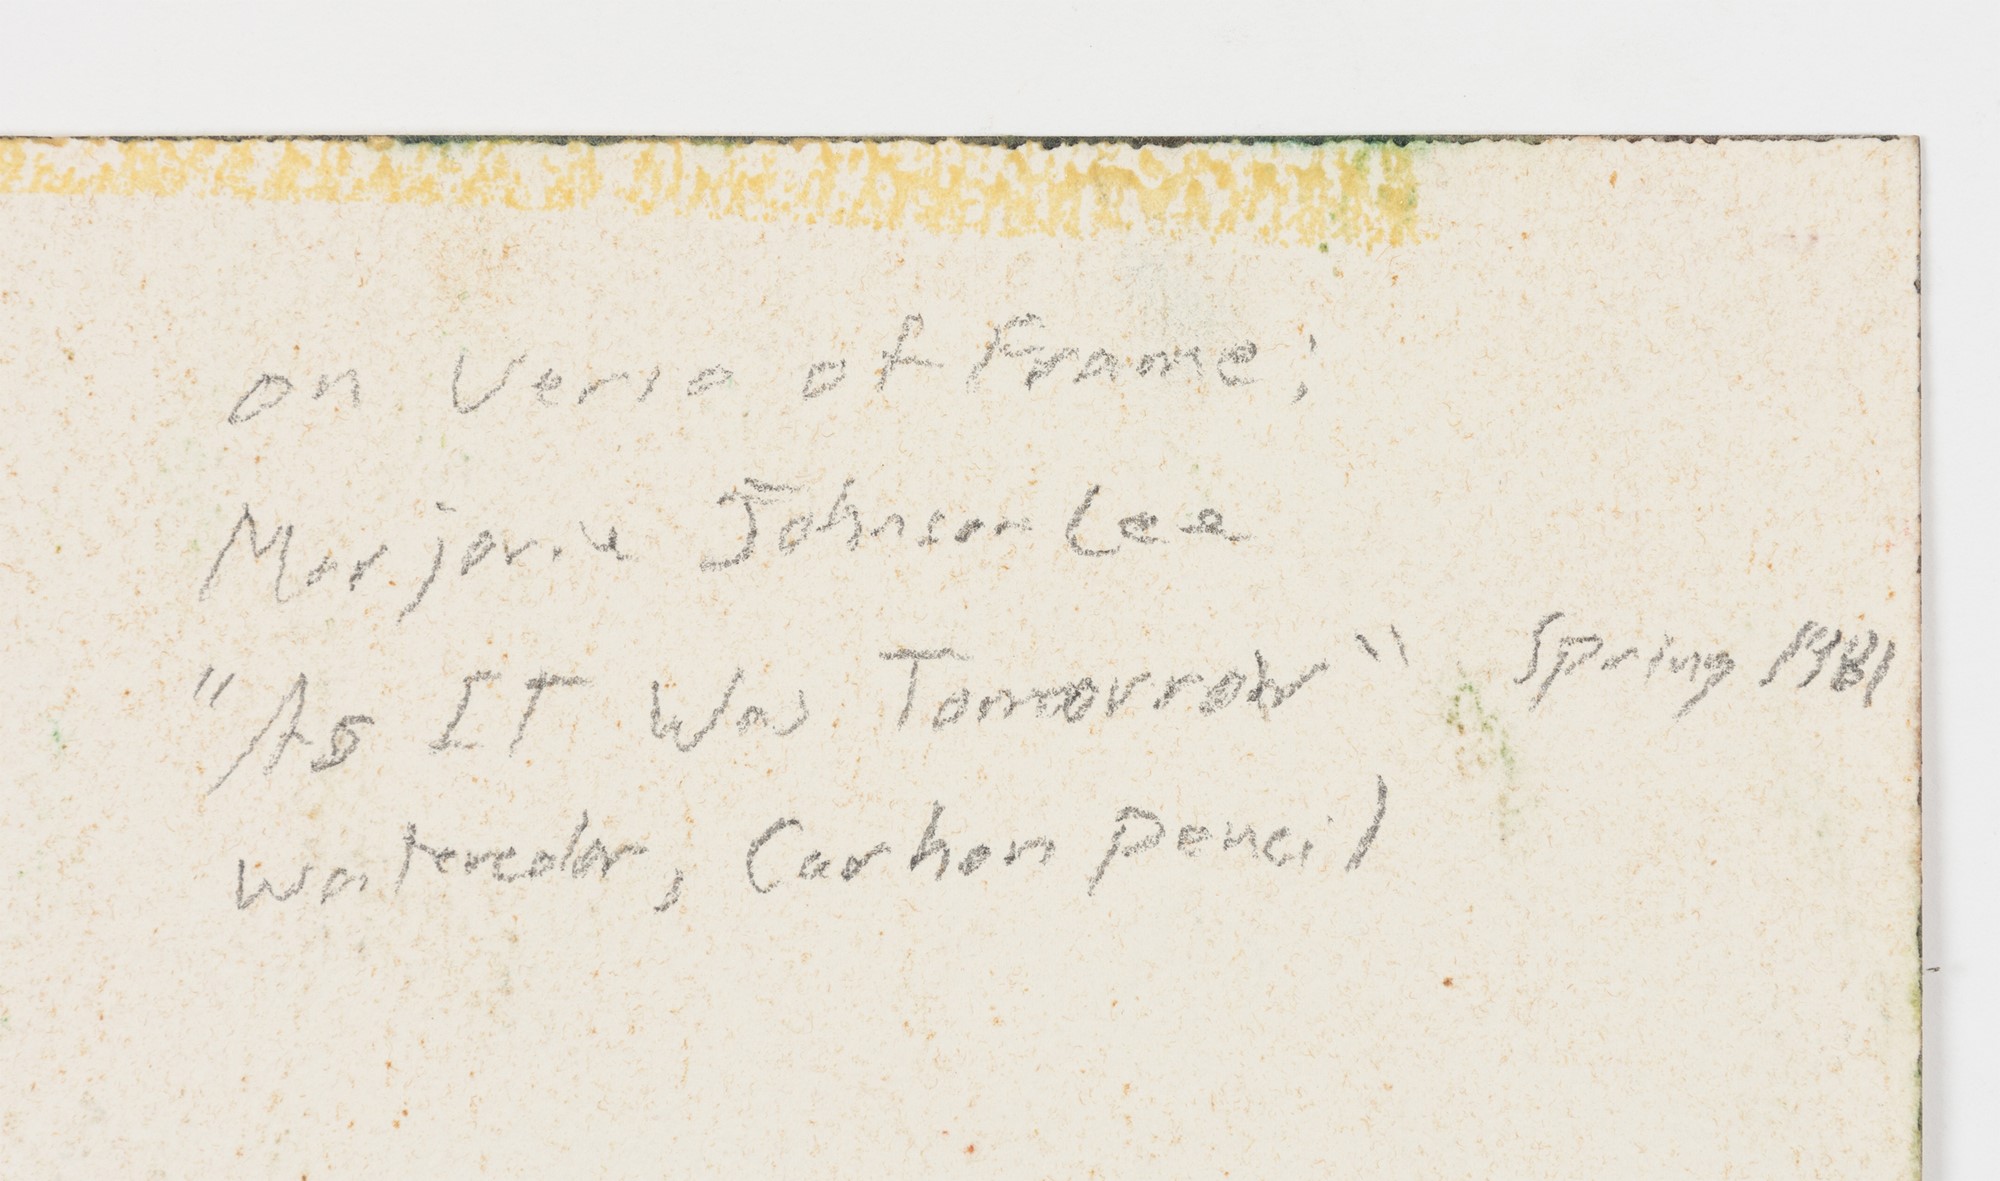 on Verso of Frame;
Marjorie Johnson Lee
"As IT Was Tomorrow" Spring 1981
watercolor, Carbon pencil